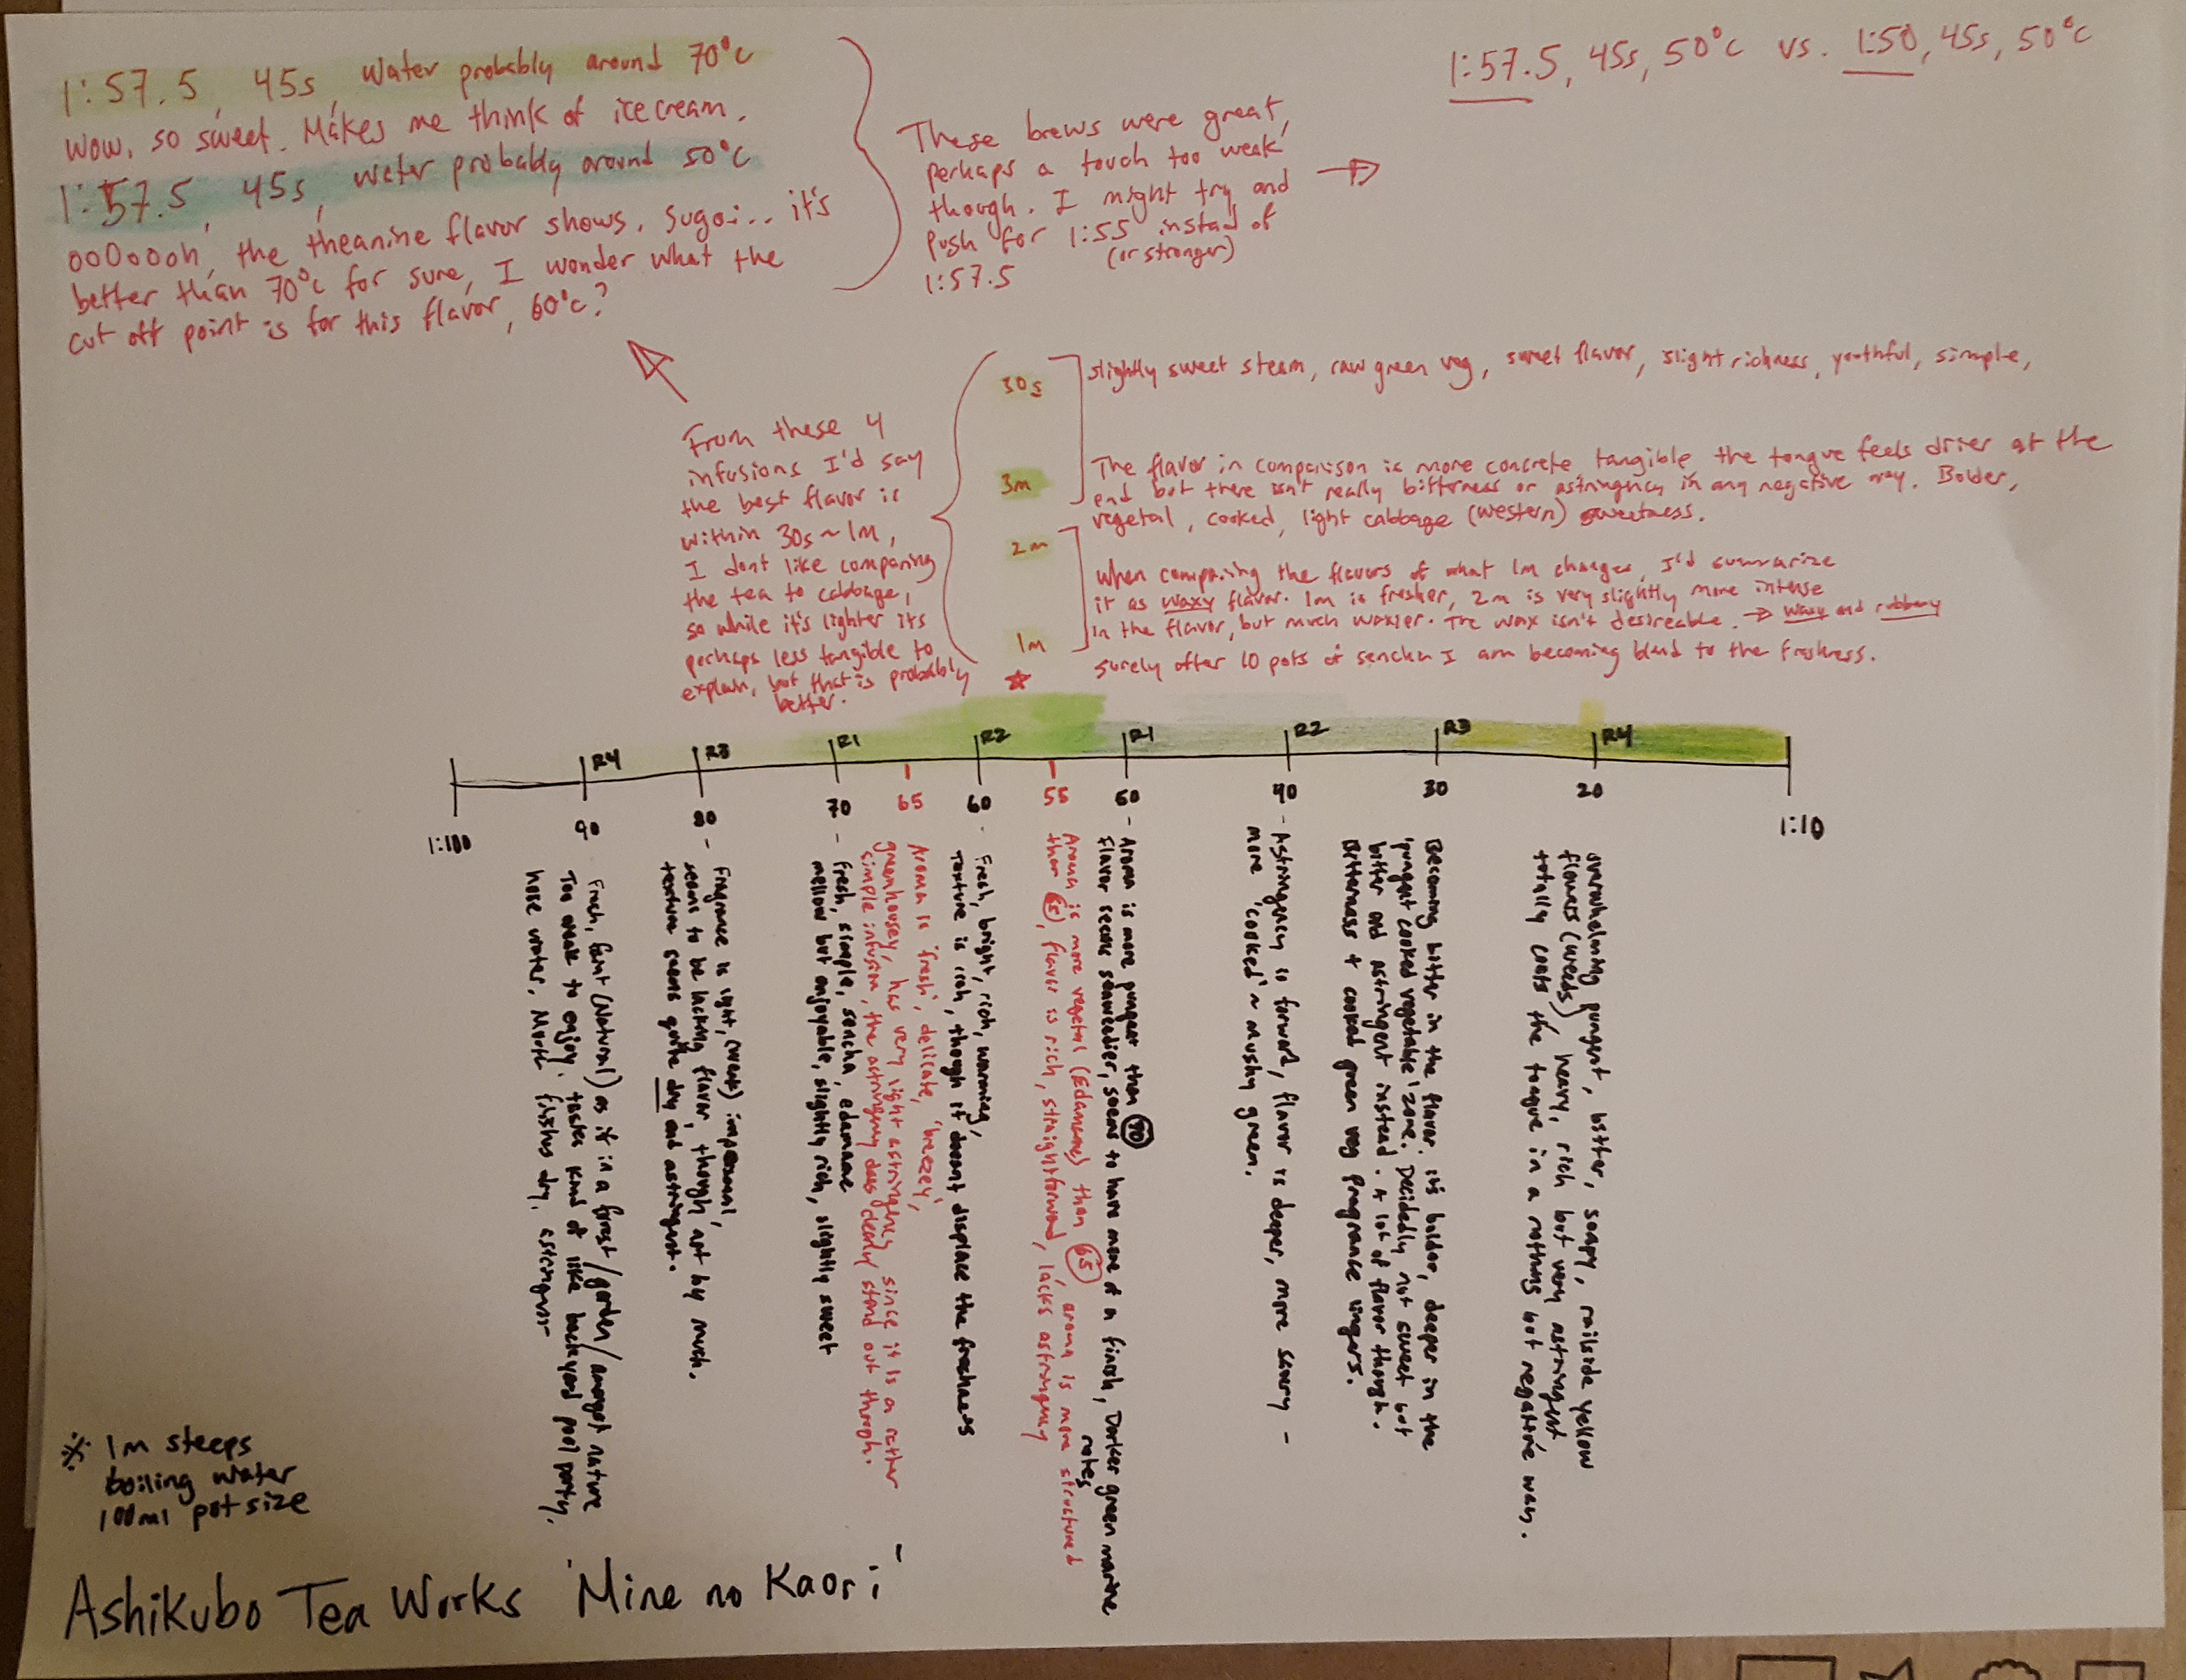 1:57.5, 45s, Water probably around 70°c
Wow, so sweet. Makes me think of ice cream.
1:57.5, 45s, water probably around 50°c
ooOoooh, the theanine flavor shows. Sugoi... it's
better than 70°c for sure, I wonder what the
cut off point is for this flavor, 60°c?
These brews were great,
perhaps a touch too weak
though. I might try and
push for 1:55 instead of
(or stronger)
1:57.5
→
1:57.5, 45s, 50°c vs. 1:50, 45s, 50°c
From these 4
infusions I'd say
the best flavor is
within 30s~1m,
I dont like comparing
the tea to cabbage,
so while it's lighter its
perhaps less tangible to
explain, but that is probably
better.
30s
slightly sweet steam, raw green veg, sweet flavor, slight richness, youthful, simple,
3m
The flavor in comparison is more concrete, tangible, the tongue feels drier at the
end but there isn't really bitterness or astringency in any negative way. Bolder,
vegetal, cooked, light cabbage (western) sweetness.
2m
When comparing the flavors of what 1m changes, I'd summarize
it as waxy flavor. 1m is fresher, 2m is very slightly more intense
in the flavor, but much waxier. The wax isn't desireable. → waxy and rubbery
1m
Surely after 10 pots of sencha I am becoming blind to the freshness.
R4 R3 R1 R2 R1 R2 R3 R4
1:100 90 80 70 65 60 55 50 40 30 20 1:10
Fresh, faint (Natural) as if in a forest/garden/amongst nature
Too weak to enjoy. tastes kind of like backyard pool party.
hose water, finishes dry,
Fragrance is light, (weak) impersonal,
seems to be lacking flavor, though not by much.
texture seems quite dry and astringent.
- fresh, simple, sencha, edamame
mellow but enjoyable, slightly rich, slightly sweet
Aroma is 'fresh', delicate, 'breezy',
greenhousey, has very light astringency since it is a rather
simple infusion, the astringency does clearly stand out though.
- Fresh, bright, rich, warming,
Texture is rich, though it doesnt displace the freshness
Aroma is more vegetal (Edamame) than 65, aroma is more structured
than 65, flavor is rich, straightforward, lacks astringency
- Aroma is more pungent than 70
flavor seems seaweedier, seems to have more of a finish, Darker green marine
notes
- Astringency is forward, flavor is deeper, more savory -
more 'cooked' ~ mushy green.
Becoming bitter in the flavor. it's bolder, deeper in the
'pungent cooked vegetable' zone. Decidedly not sweet but
bitter and astringent instead. A lot of flavor though.
Bitterness + cooked green veg fragrance lingers.
overwhelming pungent, bitter, soapy, railside yellow
flowers (weeds), heavy, rich but very astringent
totally coats the tongue in a nothing but negative way.
※ 1m steeps
boiling water
100ml pot size
Ashikubo Tea Works 'Mine no Kaori'